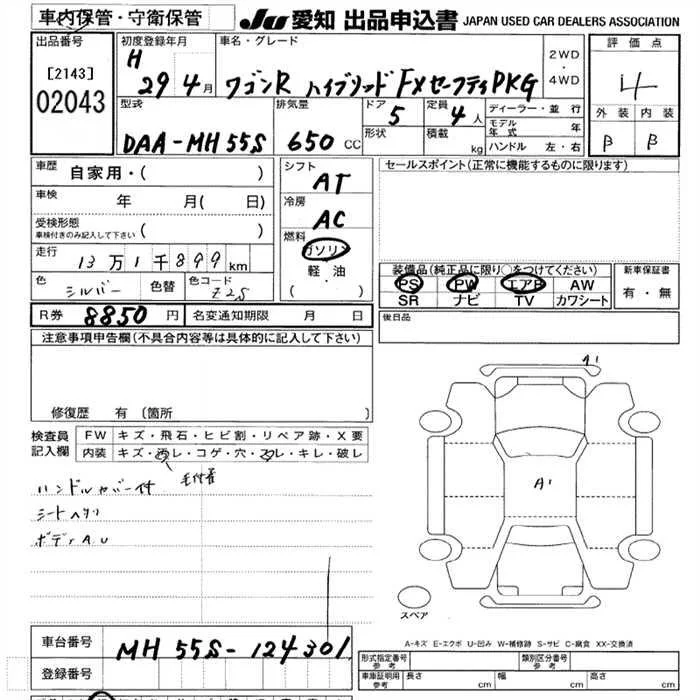 車内保管・守衛保管 JU 愛知 出品申込書 JAPAN USED CAR DEALERS ASSOCIATION
出品番号 初度登録年月 車名・グレード 2WD・4WD 評価点
[2143] H 29年 4月 ワゴンR ハイブリッドFXセーフティPKG 4
02043
型式 排気量 ドア 定員 ディーラー・並行 外装 内装
DAA-MH55S 650 CC 5 4人 モデル年式 年 B B
形状 積載 kg ハンドル 左・右
車歴 自家用・( ) シフト AT セールスポイント(正常に機能するものに限ります)
車検 年 月( 日) 冷房 AC
受検形態 車検付きのみ記入して下さい ( )
燃料 ガソリン 軽油 ( )
走行 13万1千899km
装備品(純正品に限り○をつけてください) 新車保証書
色 シルバー 色替 色コード Z2S
PS PW エアB AW 有・無
SR ナビ TV カワシート
R券 8850円 名変通知期限 月 日 後日品
注意事項申告欄(不具合内容等は具体的に記入して下さい)
A1
修復歴 有(箇所
検査員記入欄 FW キズ・飛石・ヒビ割・リペア跡・X要
内装 キズ・汚レ・コゲ・穴・スレ・キレ・破レ
毛付着
ハンドルカバー付
A1
シートヘタリ
ボディAU
スペア
A-キズ E-エクボ U-凹み W-補修跡 S-サビ C-腐食 XX-交換済
車台番号 MH55S-124301
形式指定番号 参考 類別区分番号 参考
登録番号
車庫証明用 参考 長さ cm 幅 cm 高さ cm